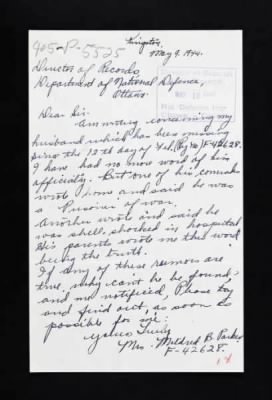 905-P-5525
Kingston
May 9. 1944.
Director of Records
Department of National Defence,
Ottawa.
Dear Sir.
Am writing concerning my
husband which has been missing
since the 12th day of Feb. F-42628.
I have had no more word of his
officially. But one of his comrades
wrote home and said he was
a Prisoner of war.
Another wrote and said he
was shell shocked in hospital
His parents wrote me this word
being the truth.
If any of these rumors are
true, why can't he be found,
and me notified, Please try
and find out, as soon as
possible for me.
Yours Truly
Mrs. Mildred B. Parker
F-42628.